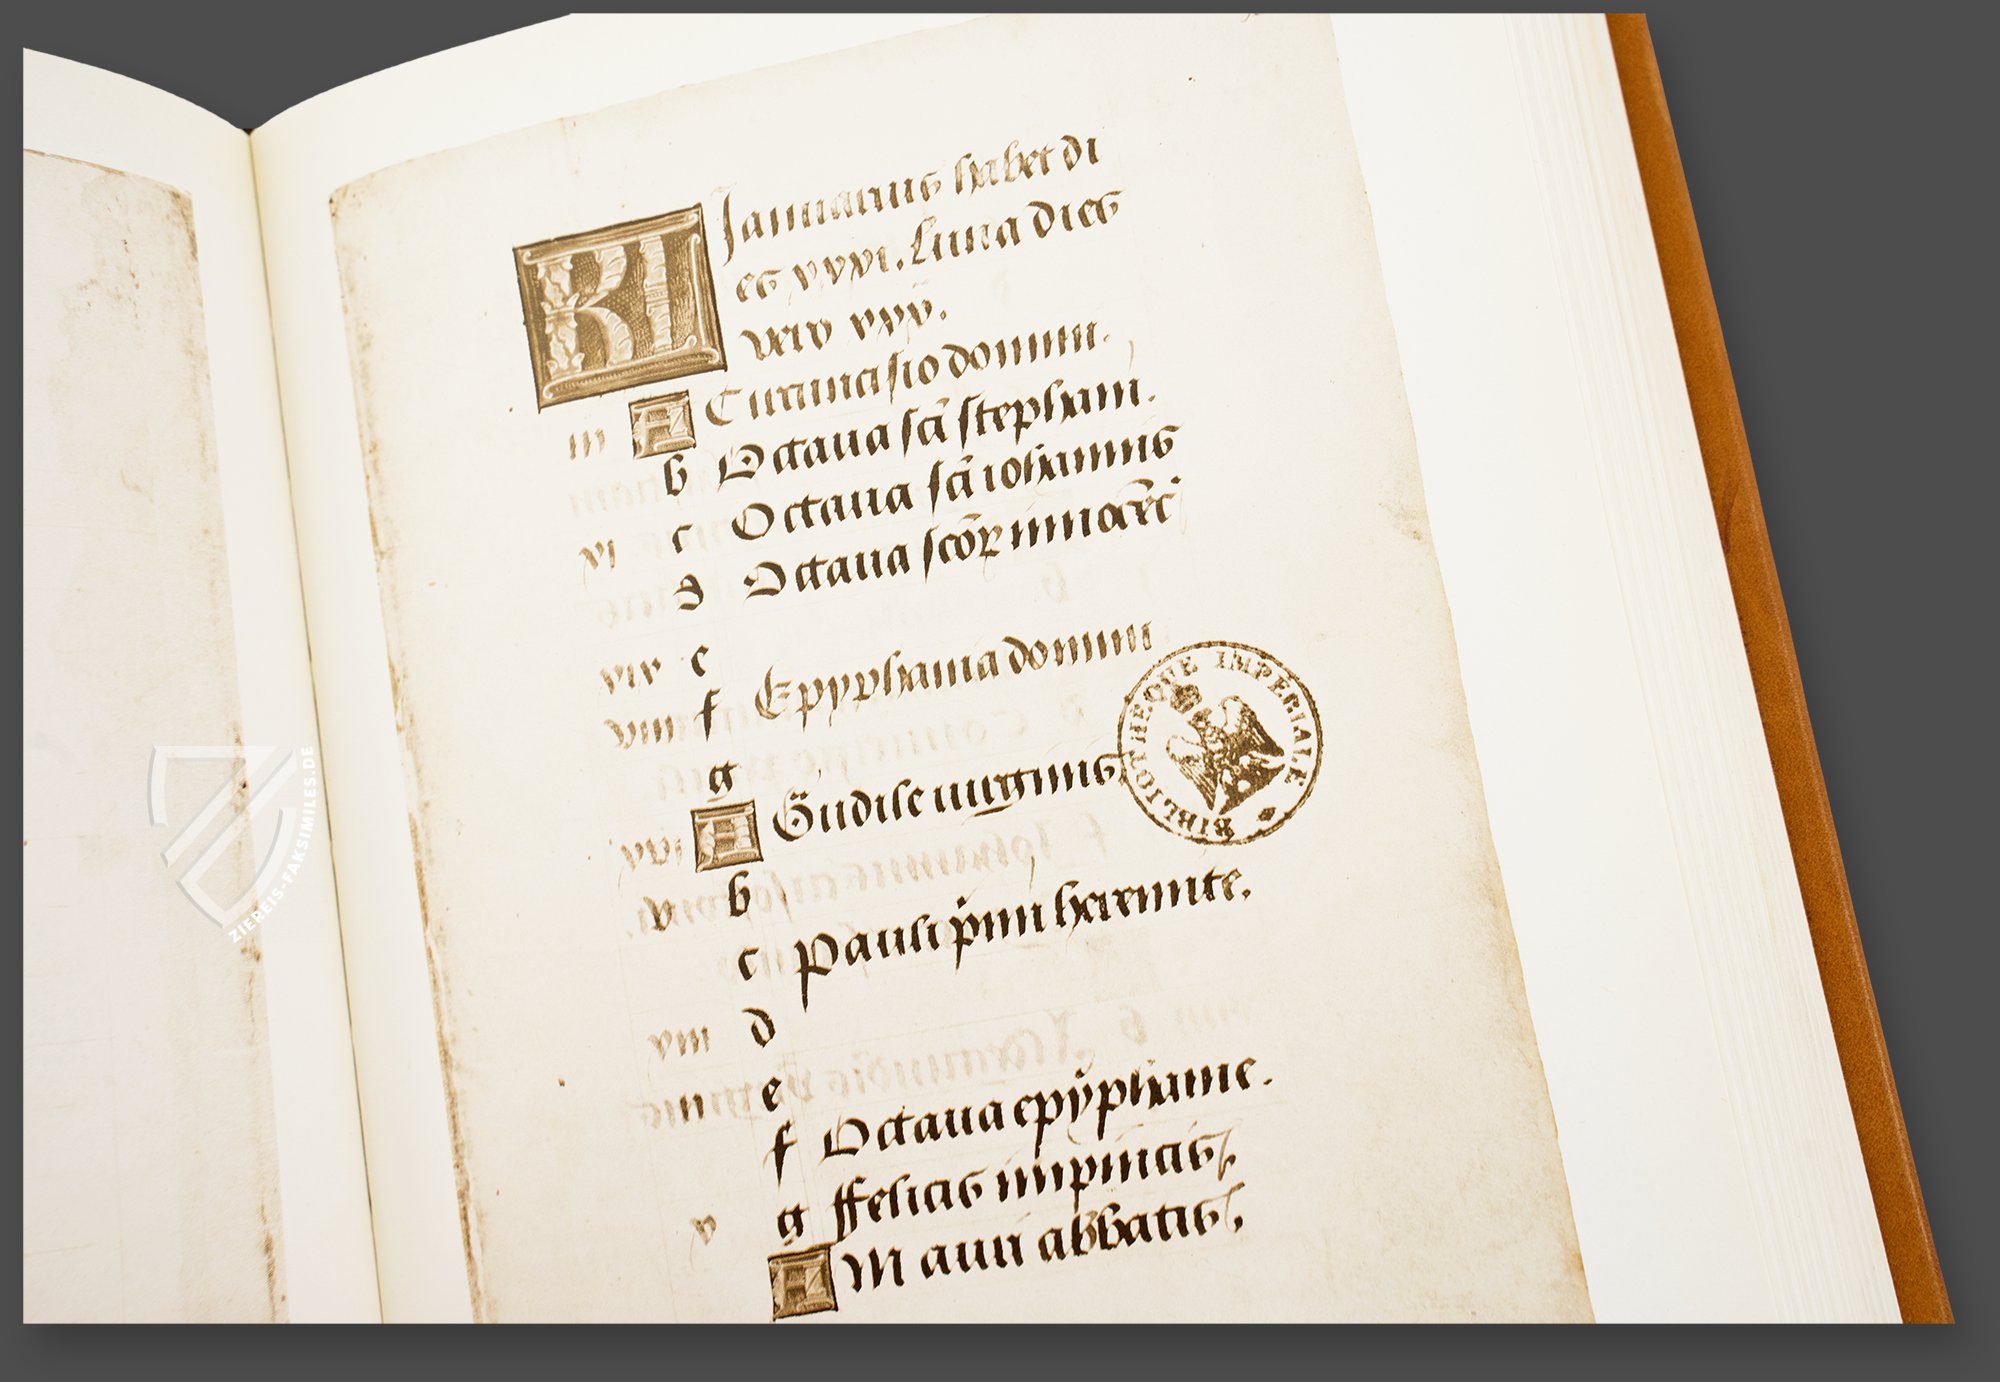 KL Januarius habet di
es xxxi. Luna dies
vero xxx.
iii A Circuncisio domini.
b Octaua scī stephani.
vi c Octaua scī iohannis
d Octaua scōꝝ innocēt
xix e
viii f Epyphania domini
g
xvi A Gudile uirginis
v b
c Pauli pimi heremite.
xiii d
ii e
f Octaua epyphanie.
v g ffelicis inpincis
A Mauri abbatis
BIBLIOTHEQUE IMPERIALE
ZIEREIS-FAKSIMILES.DE